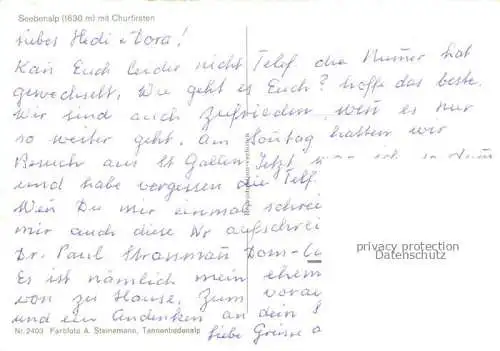 Seebenalp (1630 m) mit Churfirsten
Liebes Hedi u Dora!
Kan Euch leider nicht Telef die Numer hat
gewechselt, Wie geht es Euch? hoffe das beste.
Wir sind auch zufrieden, wen es nur
so weiter geht. am Sontag hatten wir
Besuch aus St Gallen Jetzt
und habe vergessen die Telf
Wen Du mir einmal schrei
mir auch diese Nr aufschrei
Dr. Paul Strassman Dom-
Es ist nämlich mein ehem
von zu Hause. Zum vorau
und ein Andenken an dein
Nr. 2403 Farbfoto A. Steinemann, Tannenbodenalp
liebe Grüsse a
Reproduktion verboten
privacy protection
Datenschutz